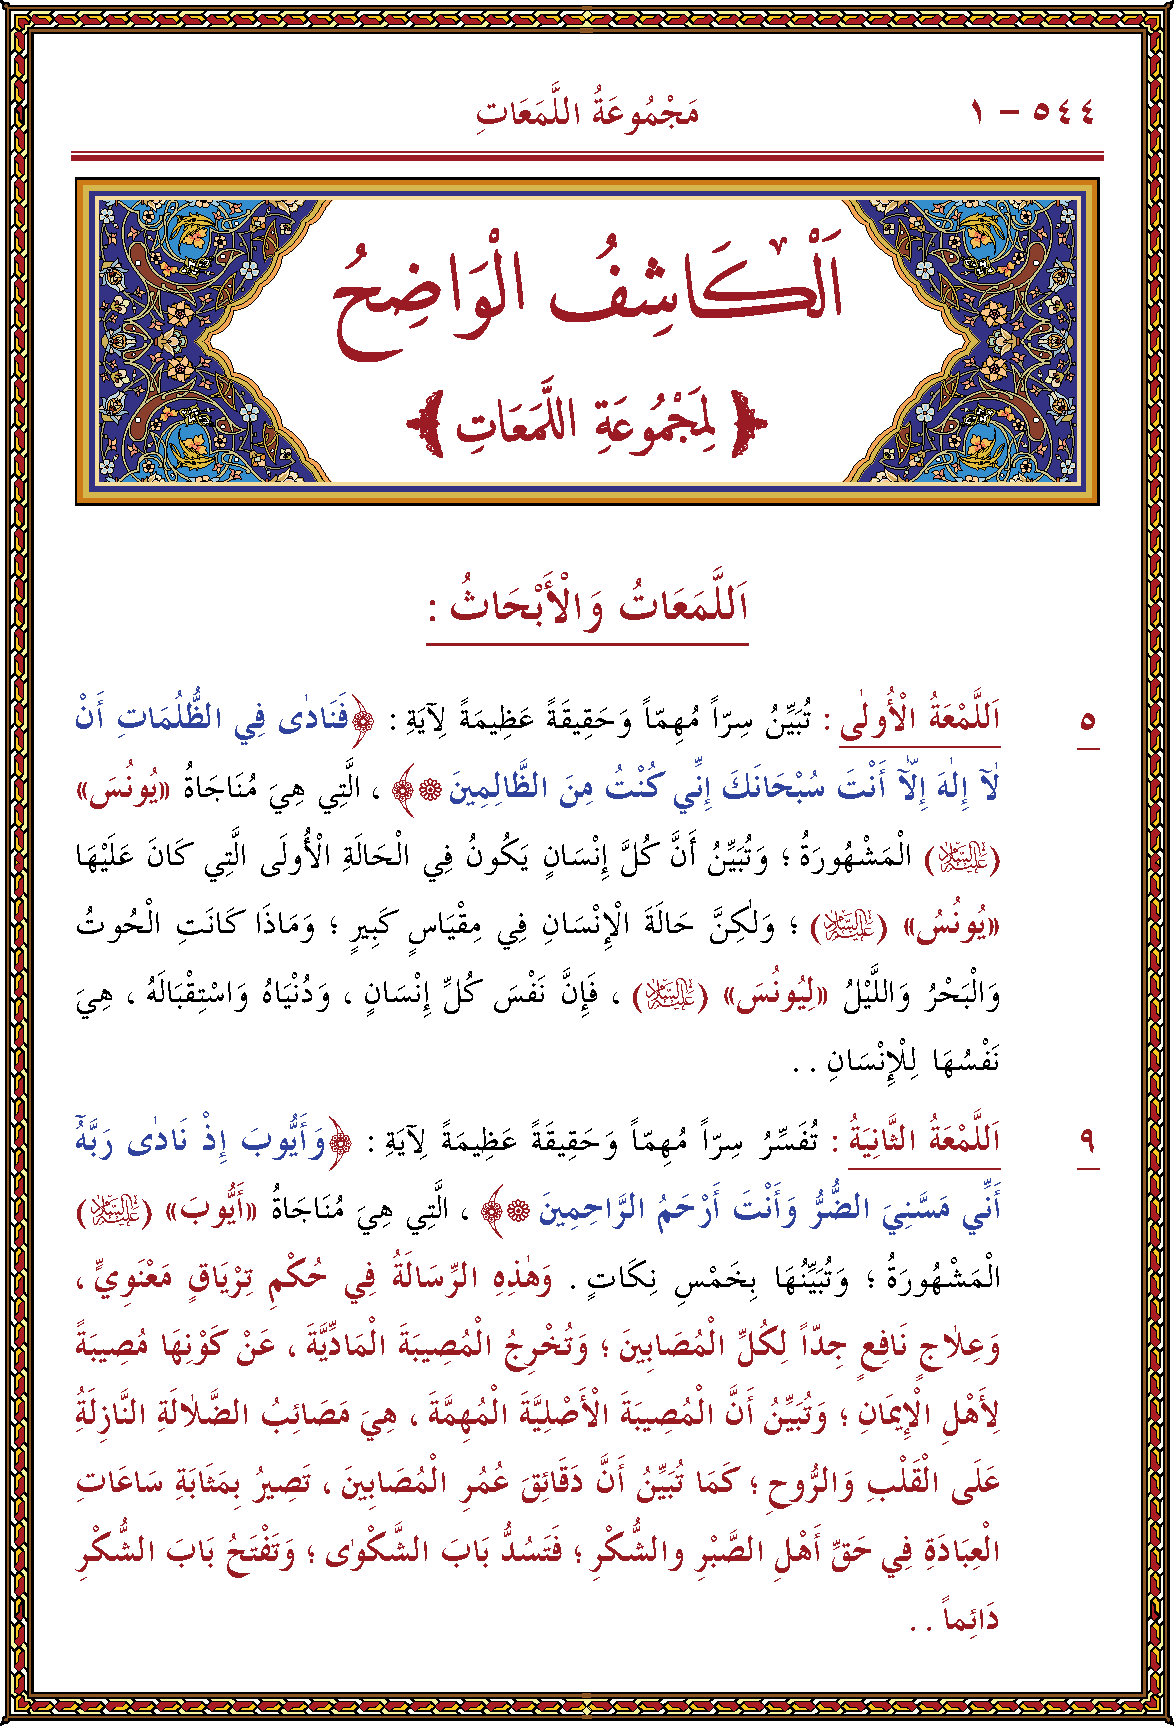 ٥٤٤ – ١ مَجْمُوعَةُ اللَّمَعَاتِ
اَلْكَاشِفُ الْوَاضِحُ
﴿ لِمَجْمُوعَةِ اللَّمَعَاتِ ﴾
اَللَّمَعَاتُ وَالْأَبْحَاثُ :
٥ اَللَّمْعَةُ الْأُولٰى : تُبَيِّنُ سِرّاً مُهِمّاً وَحَقِيقَةً عَظِيمَةً لِآيَةِ : ﴿فَنَادٰى فِي الظُّلُمَاتِ أَنْ
لَآ إِلٰهَ إِلَّآ أَنْتَ سُبْحَانَكَ إِنِّي كُنْتُ مِنَ الظَّالِمِينَ۞﴾ ، الَّتِي هِيَ مُنَاجَاةُ «يُونُسَ»
(عَلَيْهِ السَّلَامُ) الْمَشْهُورَةُ ؛ وَتُبَيِّنُ أَنَّ كُلَّ إِنْسَانٍ يَكُونُ فِي الْحَالَةِ الْأُولَى الَّتِي كَانَ عَلَيْهَا
«يُونُسُ» (عَلَيْهِ السَّلَامُ) ؛ وَلٰكِنَّ حَالَةَ الْإِنْسَانِ فِي مِقْيَاسٍ كَبِيرٍ ؛ وَمَاذَا كَانَتِ الْحُوتُ
وَالْبَحْرُ وَاللَّيْلُ «لِيُونُسَ» (عَلَيْهِ السَّلَامُ) ، فَإِنَّ نَفْسَ كُلِّ إِنْسَانٍ ، وَدُنْيَاهُ وَاسْتِقْبَالَهُ ، هِيَ
نَفْسُهَا لِلْإِنْسَانِ . .
٩ اَللَّمْعَةُ الثَّانِيَةُ : تُفَسِّرُ سِرّاً مُهِمّاً وَحَقِيقَةً عَظِيمَةً لِآيَةِ : ﴿وَأَيُّوبَ إِذْ نَادٰى رَبَّهُٓ
أَنِّي مَسَّنِيَ الضُّرُّ وَأَنْتَ أَرْحَمُ الرَّاحِمِينَ ۞﴾ ، الَّتِي هِيَ مُنَاجَاةُ «أَيُّوبَ» (عَلَيْهِ السَّلَامُ)
الْمَشْهُورَةُ ؛ وَتُبَيِّنُهَا بِخَمْسِ نِكَاتٍ . وَهٰذِهِ الرِّسَالَةُ فِي حُكْمِ تِرْيَاقٍ مَعْنَوِيٍّ ،
وَعِلَاجٍ نَافِعٍ جِدّاً لِكُلِّ الْمُصَابِينَ ؛ وَتُخْرِجُ الْمُصِيبَةَ الْمَادِّيَّةَ ، عَنْ كَوْنِهَا مُصِيبَةً
لِأَهْلِ الْإِيمَانِ ؛ وَتُبَيِّنُ أَنَّ الْمُصِيبَةَ الْأَصْلِيَّةَ الْمُهِمَّةَ ، هِيَ مَصَائِبُ الضَّلَالَةِ النَّازِلَةُ
عَلَى الْقَلْبِ وَالرُّوحِ ؛ كَمَا تُبَيِّنُ أَنَّ دَقَائِقَ عُمُرِ الْمُصَابِينَ ، تَصِيرُ بِمَثَابَةِ سَاعَاتِ
الْعِبَادَةِ فِي حَقِّ أَهْلِ الصَّبْرِ والشُّكْرِ ؛ فَتَسُدُّ بَابَ الشَّكْوٰى ؛ وَتَفْتَحُ بَابَ الشُّكْرِ
دَائِماً . .